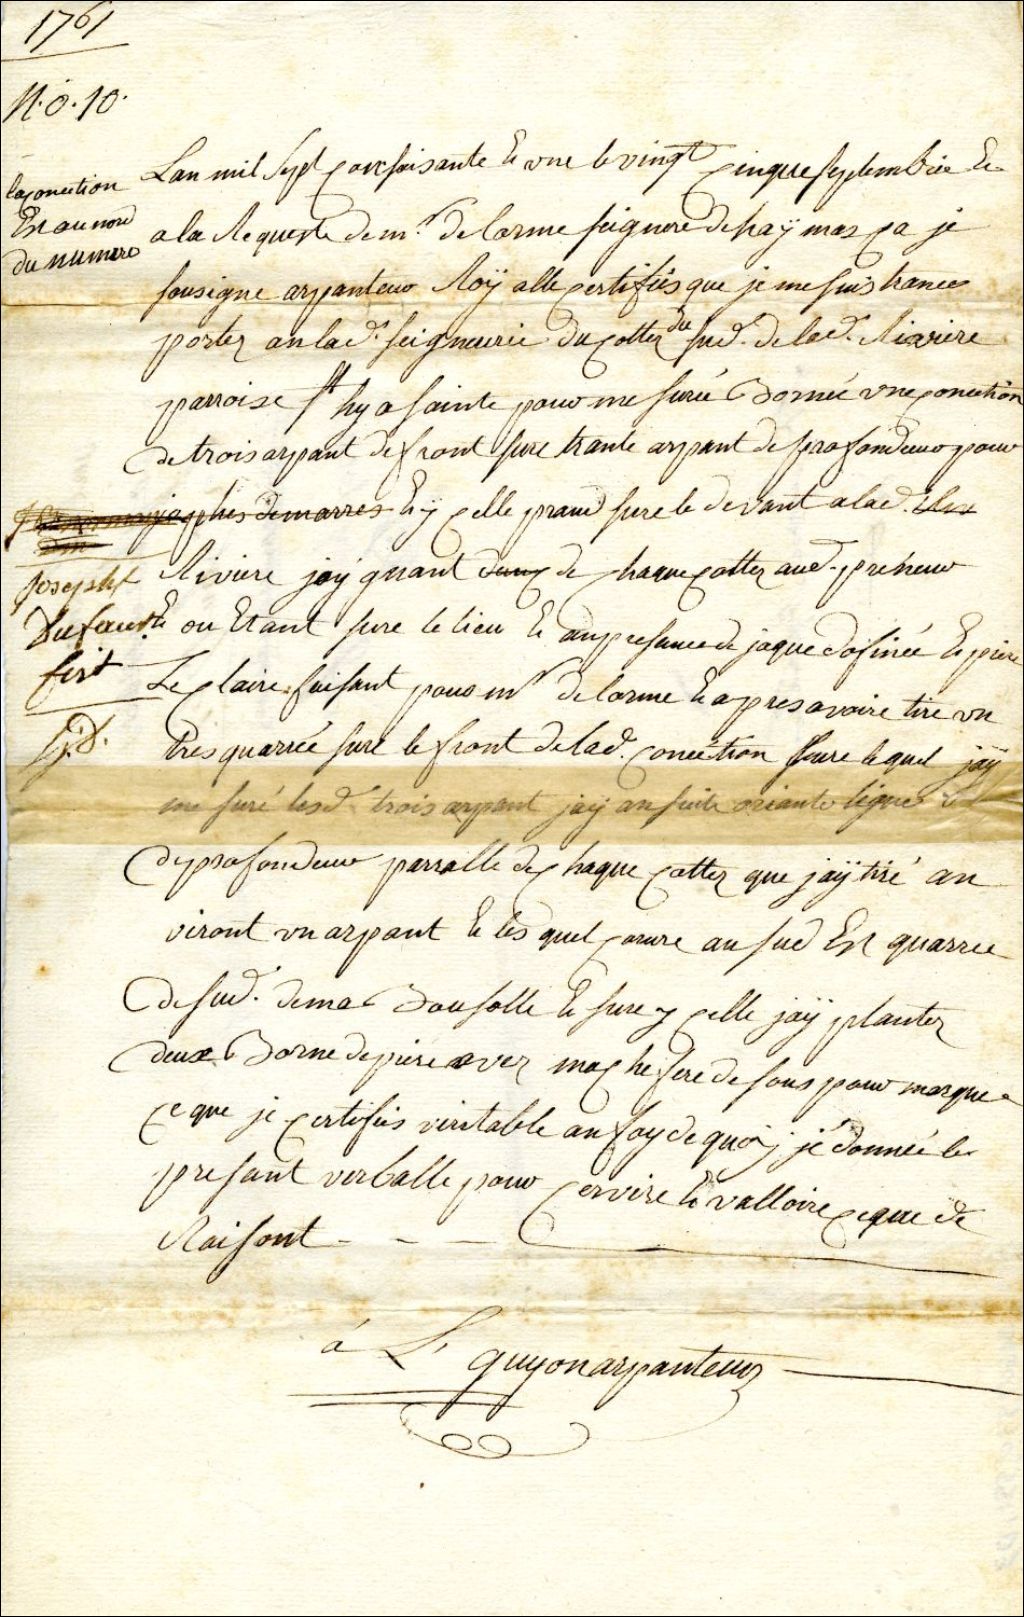 1761
N.o.10.
la conection
En au nord
du numero
Lan mil Sept Soisante Et vne le vingt cinque septembre Et
a la Requeste de mr. de lorme seignore de haÿ mas ça je
sousigne arpanteur Roÿalle certifiës que je me suis trance
porter an lad. seigneurie du cotter du sud. de lad. Riviere
parroise St hy a sainte pour me suréé Bornéé vne conection
de trois arpant de front sure trante arpant de profondeur pour
demarres hÿ celle prand sure le devant a lad.
Joseph
Dufeau
fist
J.D.
Riviere joÿ gnant de chaque cotter aud. preneur
Et ou Etant sure le lieu Et anpresance de jaque dofinée Et piere
Leclaire faisant pour mr de lorme Et apres avoire tire vn
tres quarréé sure le front de lad. conection sure le quel jaÿ
me suré lesd. trois arpant jaÿ ansuite oriante ligne
de profondeur parralle de chaque cotter que jaÿ tiré an
viront vn arpant Et les quel courre au sud Est quarree
de sud. de ma Bousolle Et sure y celle jaÿ planter
deux Borne de piere avec mache fere de sous pour marque
ce que je certifiës viritable an foy de quoÿ jé donnéé le
presant verballe pour cervire Et valloire ceque de
Raisont - - -
á L' guyon arpanteur